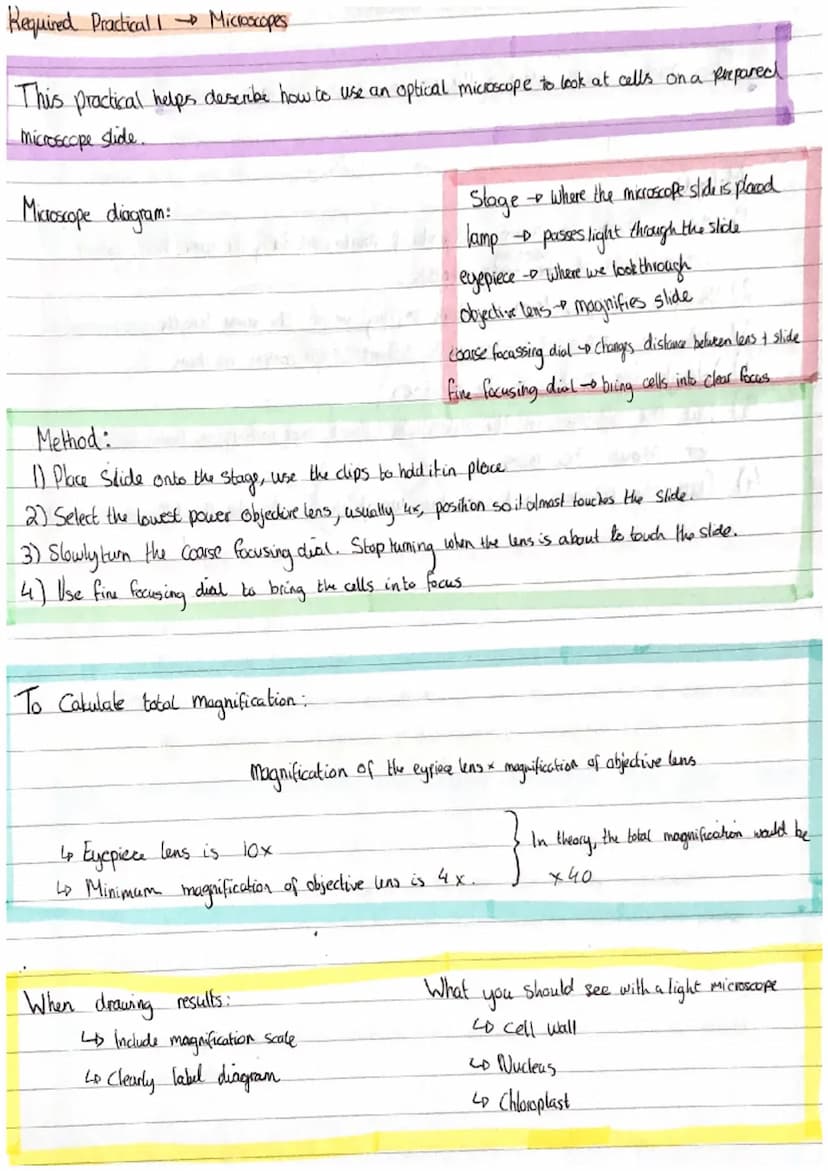 Required Practical 1 → Microscopes
This practical helps describe how to use an optical microscope to look at cells on a prepared
microscope slide.
Microscope diagram:
Stage → where the microscope slide is placed
lamp → passes light through the slide
eyepiece → where we look through
objective lens → magnifies slide
coarse focussing dial → changes distance between lens + slide
fine focusing dial → bring cells into clear focus
Method:
1) Place slide onto the stage, use the clips to hold it in place
2) Select the lowest power objective lens, usually 4x, position so it almost touches the slide.
3) Slowly turn the coarse focusing dial. Stop turning when the lens is about to touch the slide.
4) Use fine focusing dial to bring the cells into focus
To Calculate total magnification:
Magnification of the eypiece lens × magnification of objective lens
↳ Eyepiece lens is 10x
↳ Minimum magnification of objective lens is 4x.
} In theory, the total magnification would be
×40
When drawing results:
↳ Include magnification scale
↳ Clearly label diagram
What you should see with a light microscope
↳ Cell wall
↳ Nucleus
↳ Chloroplast